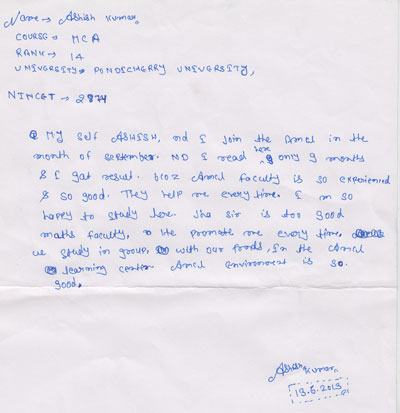 Name → Ashish Kumar.
COURSE → MCA
RANK → 14
UNIVERSITY → PONDICHERRY UNIVERSITY,
NIMCET → 2874
My self ASHISH, nd I join the Amcl in the
month of september. ND I read here only 9 months
& I get result. bcoz Amcl faculty is so experienced
& so good. They help me every time. I m so
happy to study here. Jha sir is too good
maths faculty, He promote me every time,
we study in group, with our frnds, In the Amcl
learning center Amcl environment is so
good.
Ashish Kumar.
13.6.2013